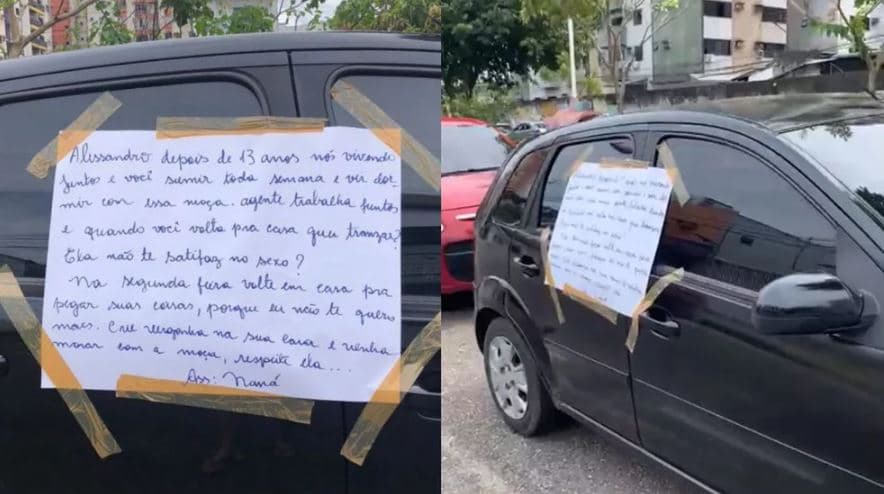 Alissandro depois de 13 anos nós vivendo
juntos e você sumir toda semana e vir dor-
mir com essa moça. agente trabalha juntos
e quando você volta pra casa quer transar?
Ela não te satifaz no sexo?
Na segunda feira volte em casa pra
pegar suas coisas, porque eu não te quero
mais. Crie vergonha na sua cara e venha
morar com a moça, respeite ela...
Ass: Naná